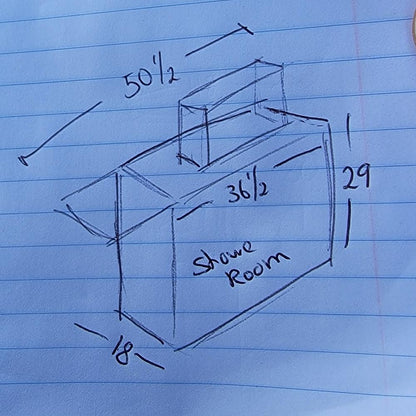 50 1/2
36 1/2
29
Showe
Room
18